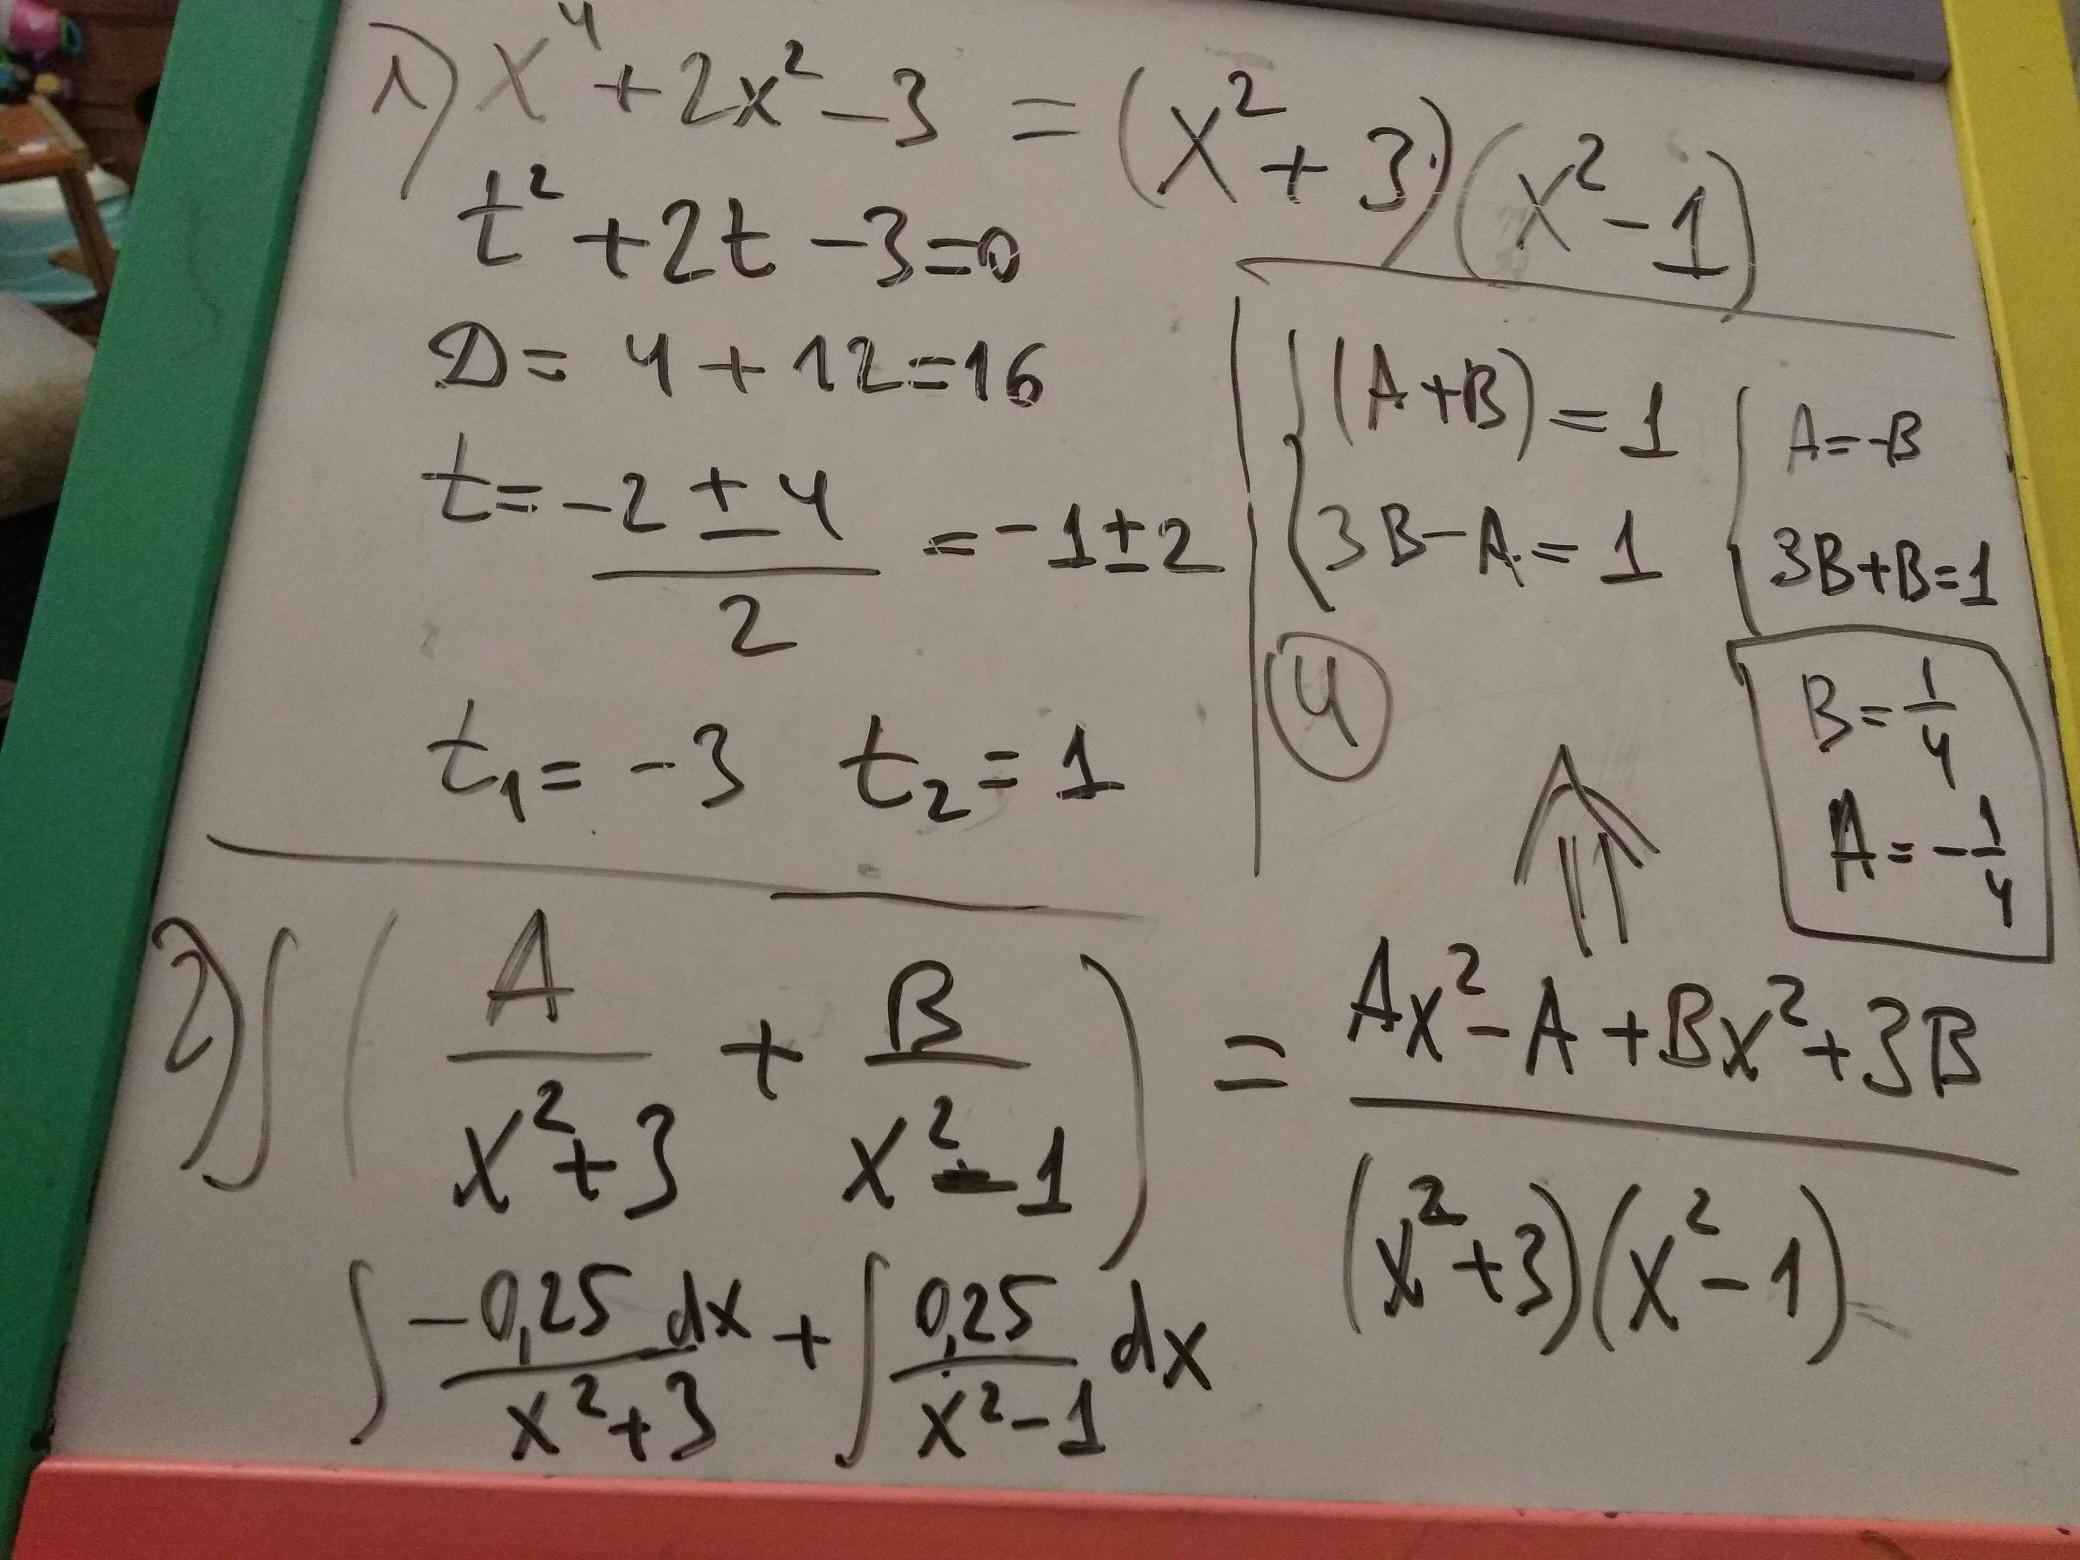 1) x⁴ + 2x² - 3 = (x² + 3)(x² - 1)
t² + 2t - 3 = 0
D = 4 + 12 = 16
t = (-2 ± 4)/2 = -1 ± 2
t₁ = -3 t₂ = 1
{(A + B) = 1
{3B - A = 1
4
{A = -B
{3B + B = 1
B = 1/4
A = -1/4
2) ∫(A/(x² + 3) + B/(x² - 1)) = (Ax² - A + Bx² + 3B)/((x² + 3)(x² - 1))
∫(-0,25 dx)/(x² + 3) + ∫0,25/(x² - 1) dx